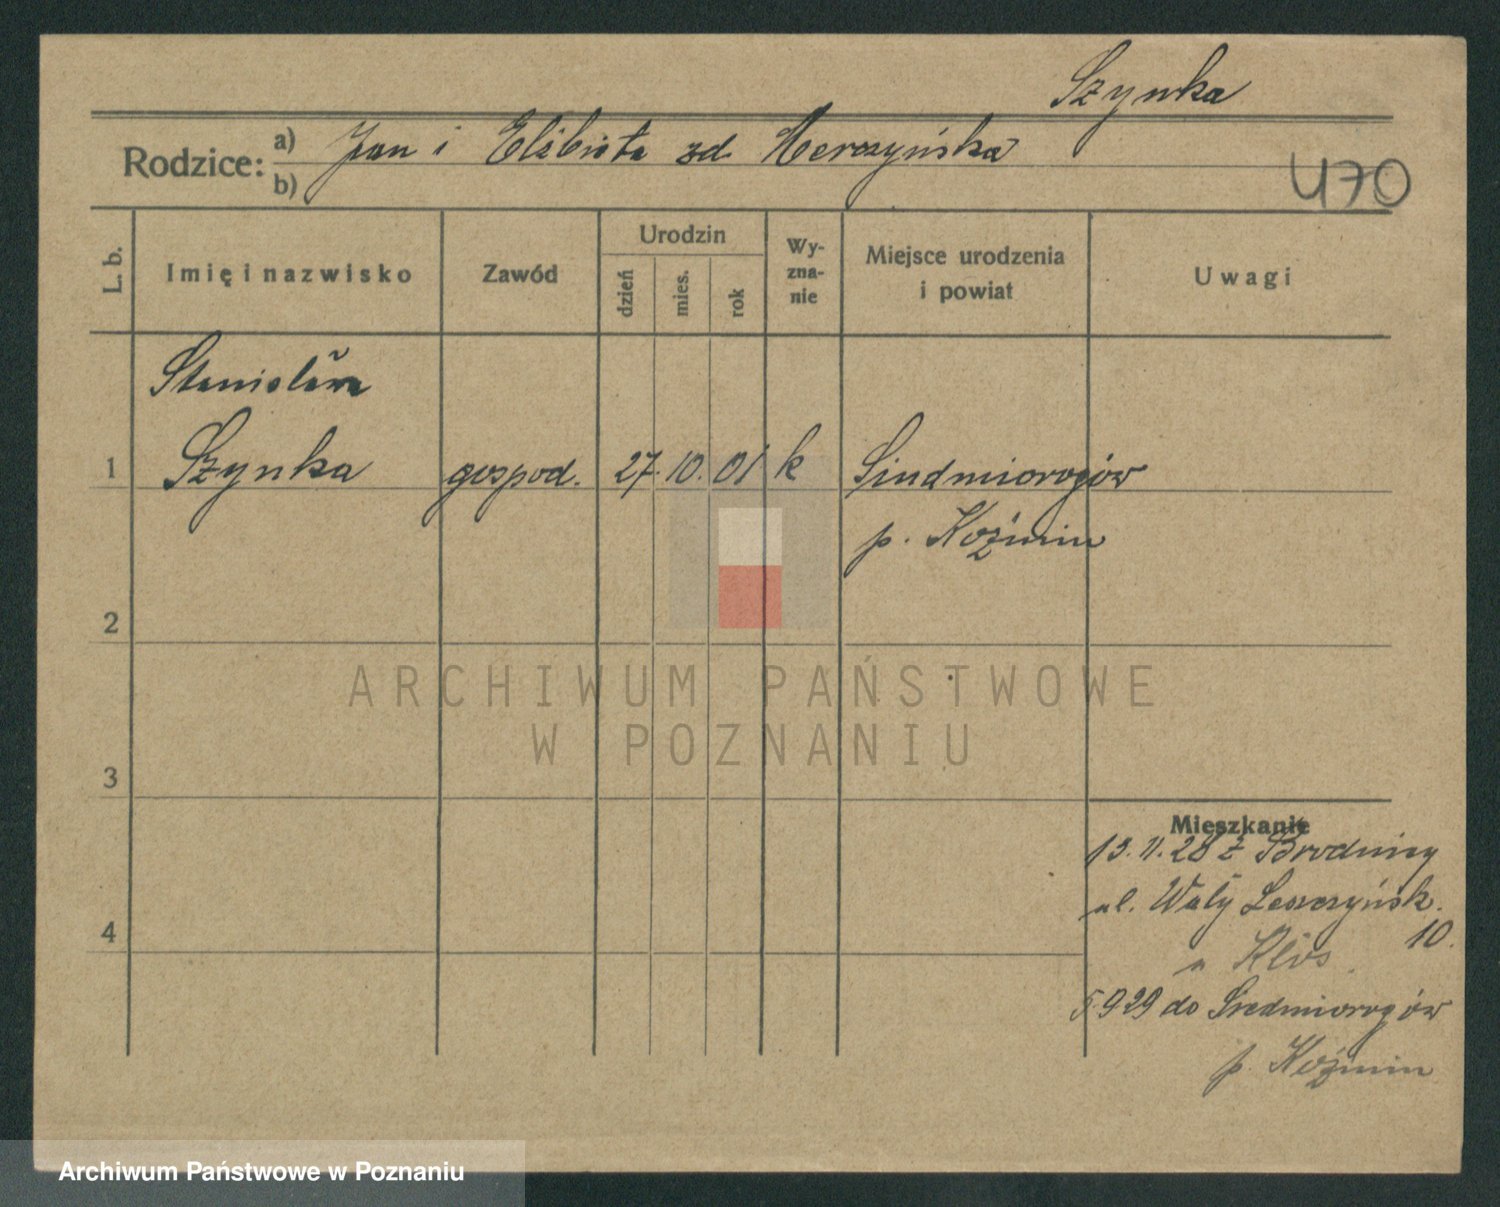 Szynka
Rodzice: a) Jan i Elżbieta zd. Merczyńska
b)
470
L. b.
Imię i nazwisko
Zawód
Urodzin
dzień
mies.
rok
Wy-
zna-
nie
Miejsce urodzenia
i powiat
Uwagi
Stanisława
1 Szynka gospod. 27. 10. 01 k Siedmiorogów
p. Koźmin
2
3
4
Mieszkanie
13.11.28 z Brodnicy
ul. Wały Leszczyńsk.
10.
u Klós
5.9.29 do Siedmiorogów
p. Koźmin
ARCHIWUM PAŃSTWOWE
W POZNANIU
Archiwum Państwowe w Poznaniu